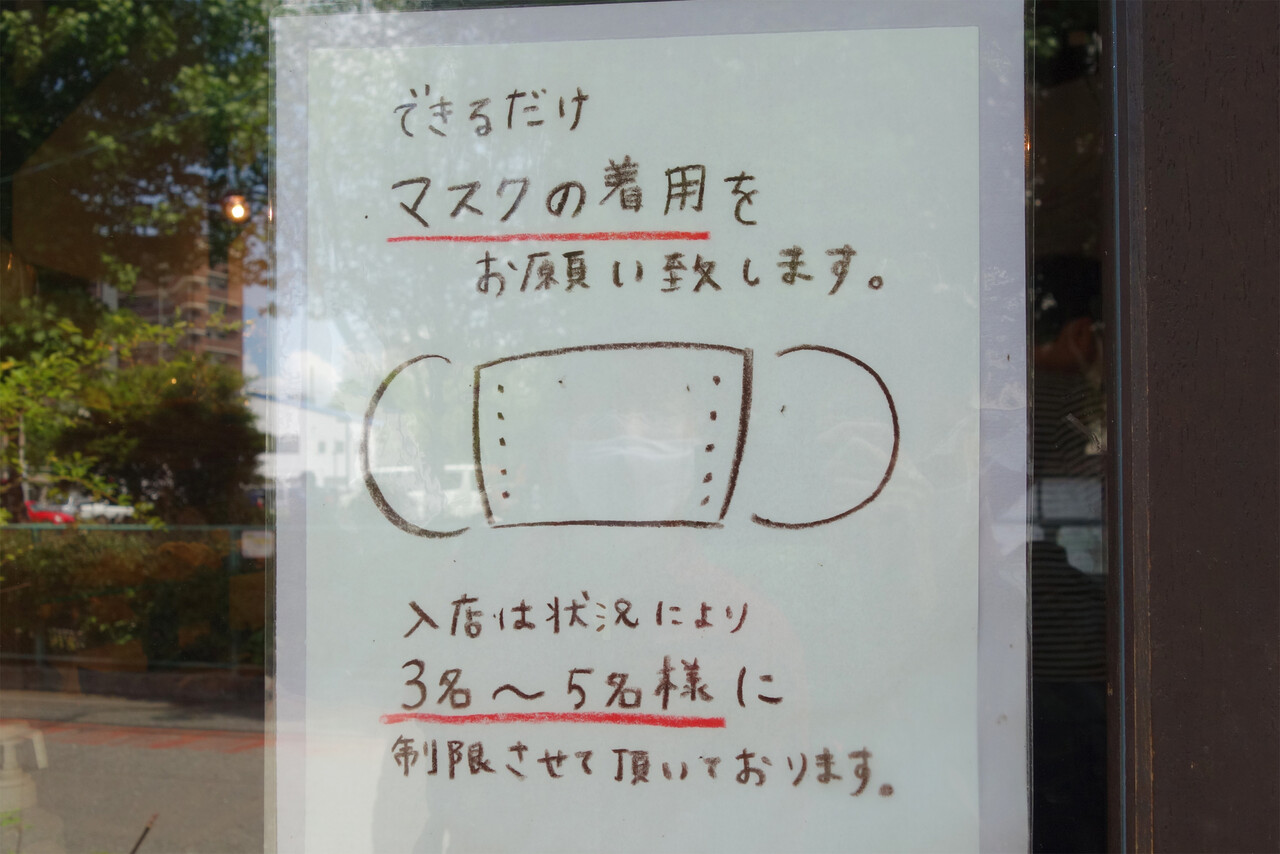 できるだけ
マスクの着用を
お願い致します。
入店は状況により
3名〜5名様に
制限させて頂いております。